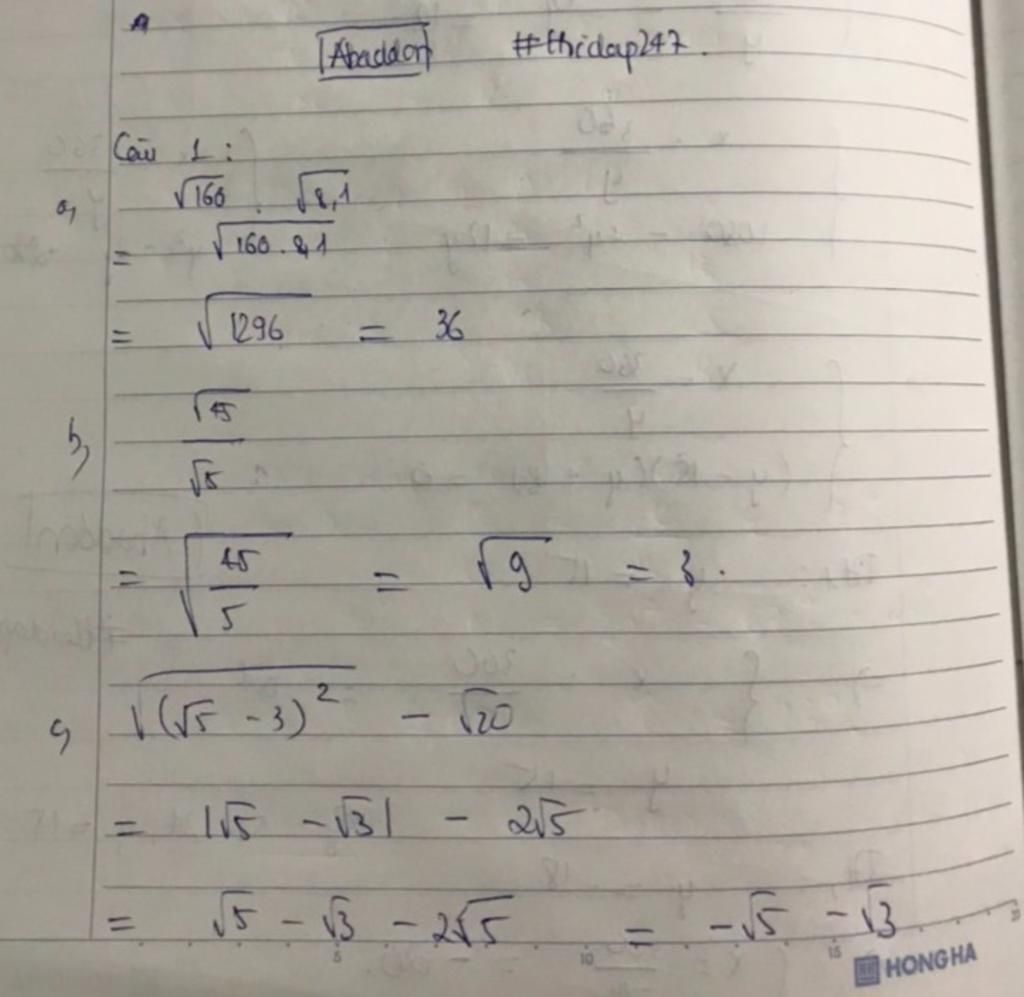 Abaddon #thidap247.
Câu 1:
a, √160 . √8,1
= √160.8,1
= √1296 = 36
b, √45/√5
= √(45/5) = √9 = 3.
c, √(√5 - 3)² - √20
= |√5 - √3| - 2√5
= √5 - √3 - 2√5 = -√5 - √3
5 10 15
HONG HA